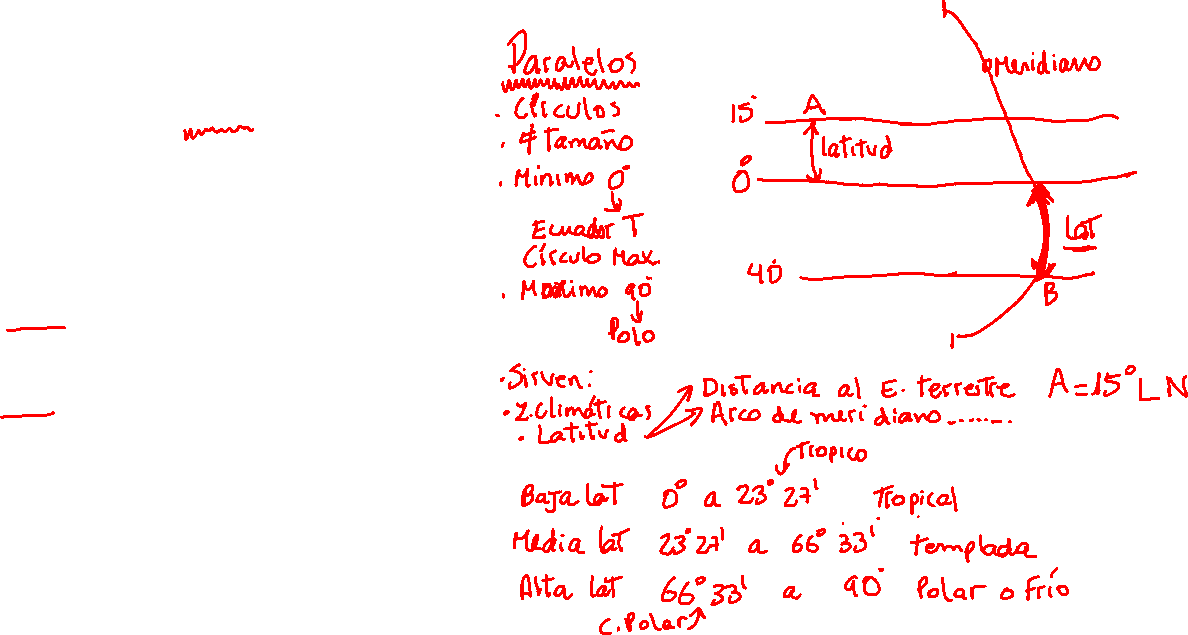 Paralelos
. Círculos
. ≠ tamaño
. Mínimo 0°
Ecuador T
Círculo Max.
. Máximo 90°
Polo
Meridiano
15° A
latitud
0°
Lat
40°
B
. Sirven:
. Z. Climáticas
. Latitud
Distancia al E. terrestre A = 15° L N
Arco de meridiano.......
Tropico
Baja lat 0° a 23° 27' Tropical
Media lat 23° 27' a 66° 33' templada
Alta lat 66° 33' a 90° Polar o Frío
C. Polar